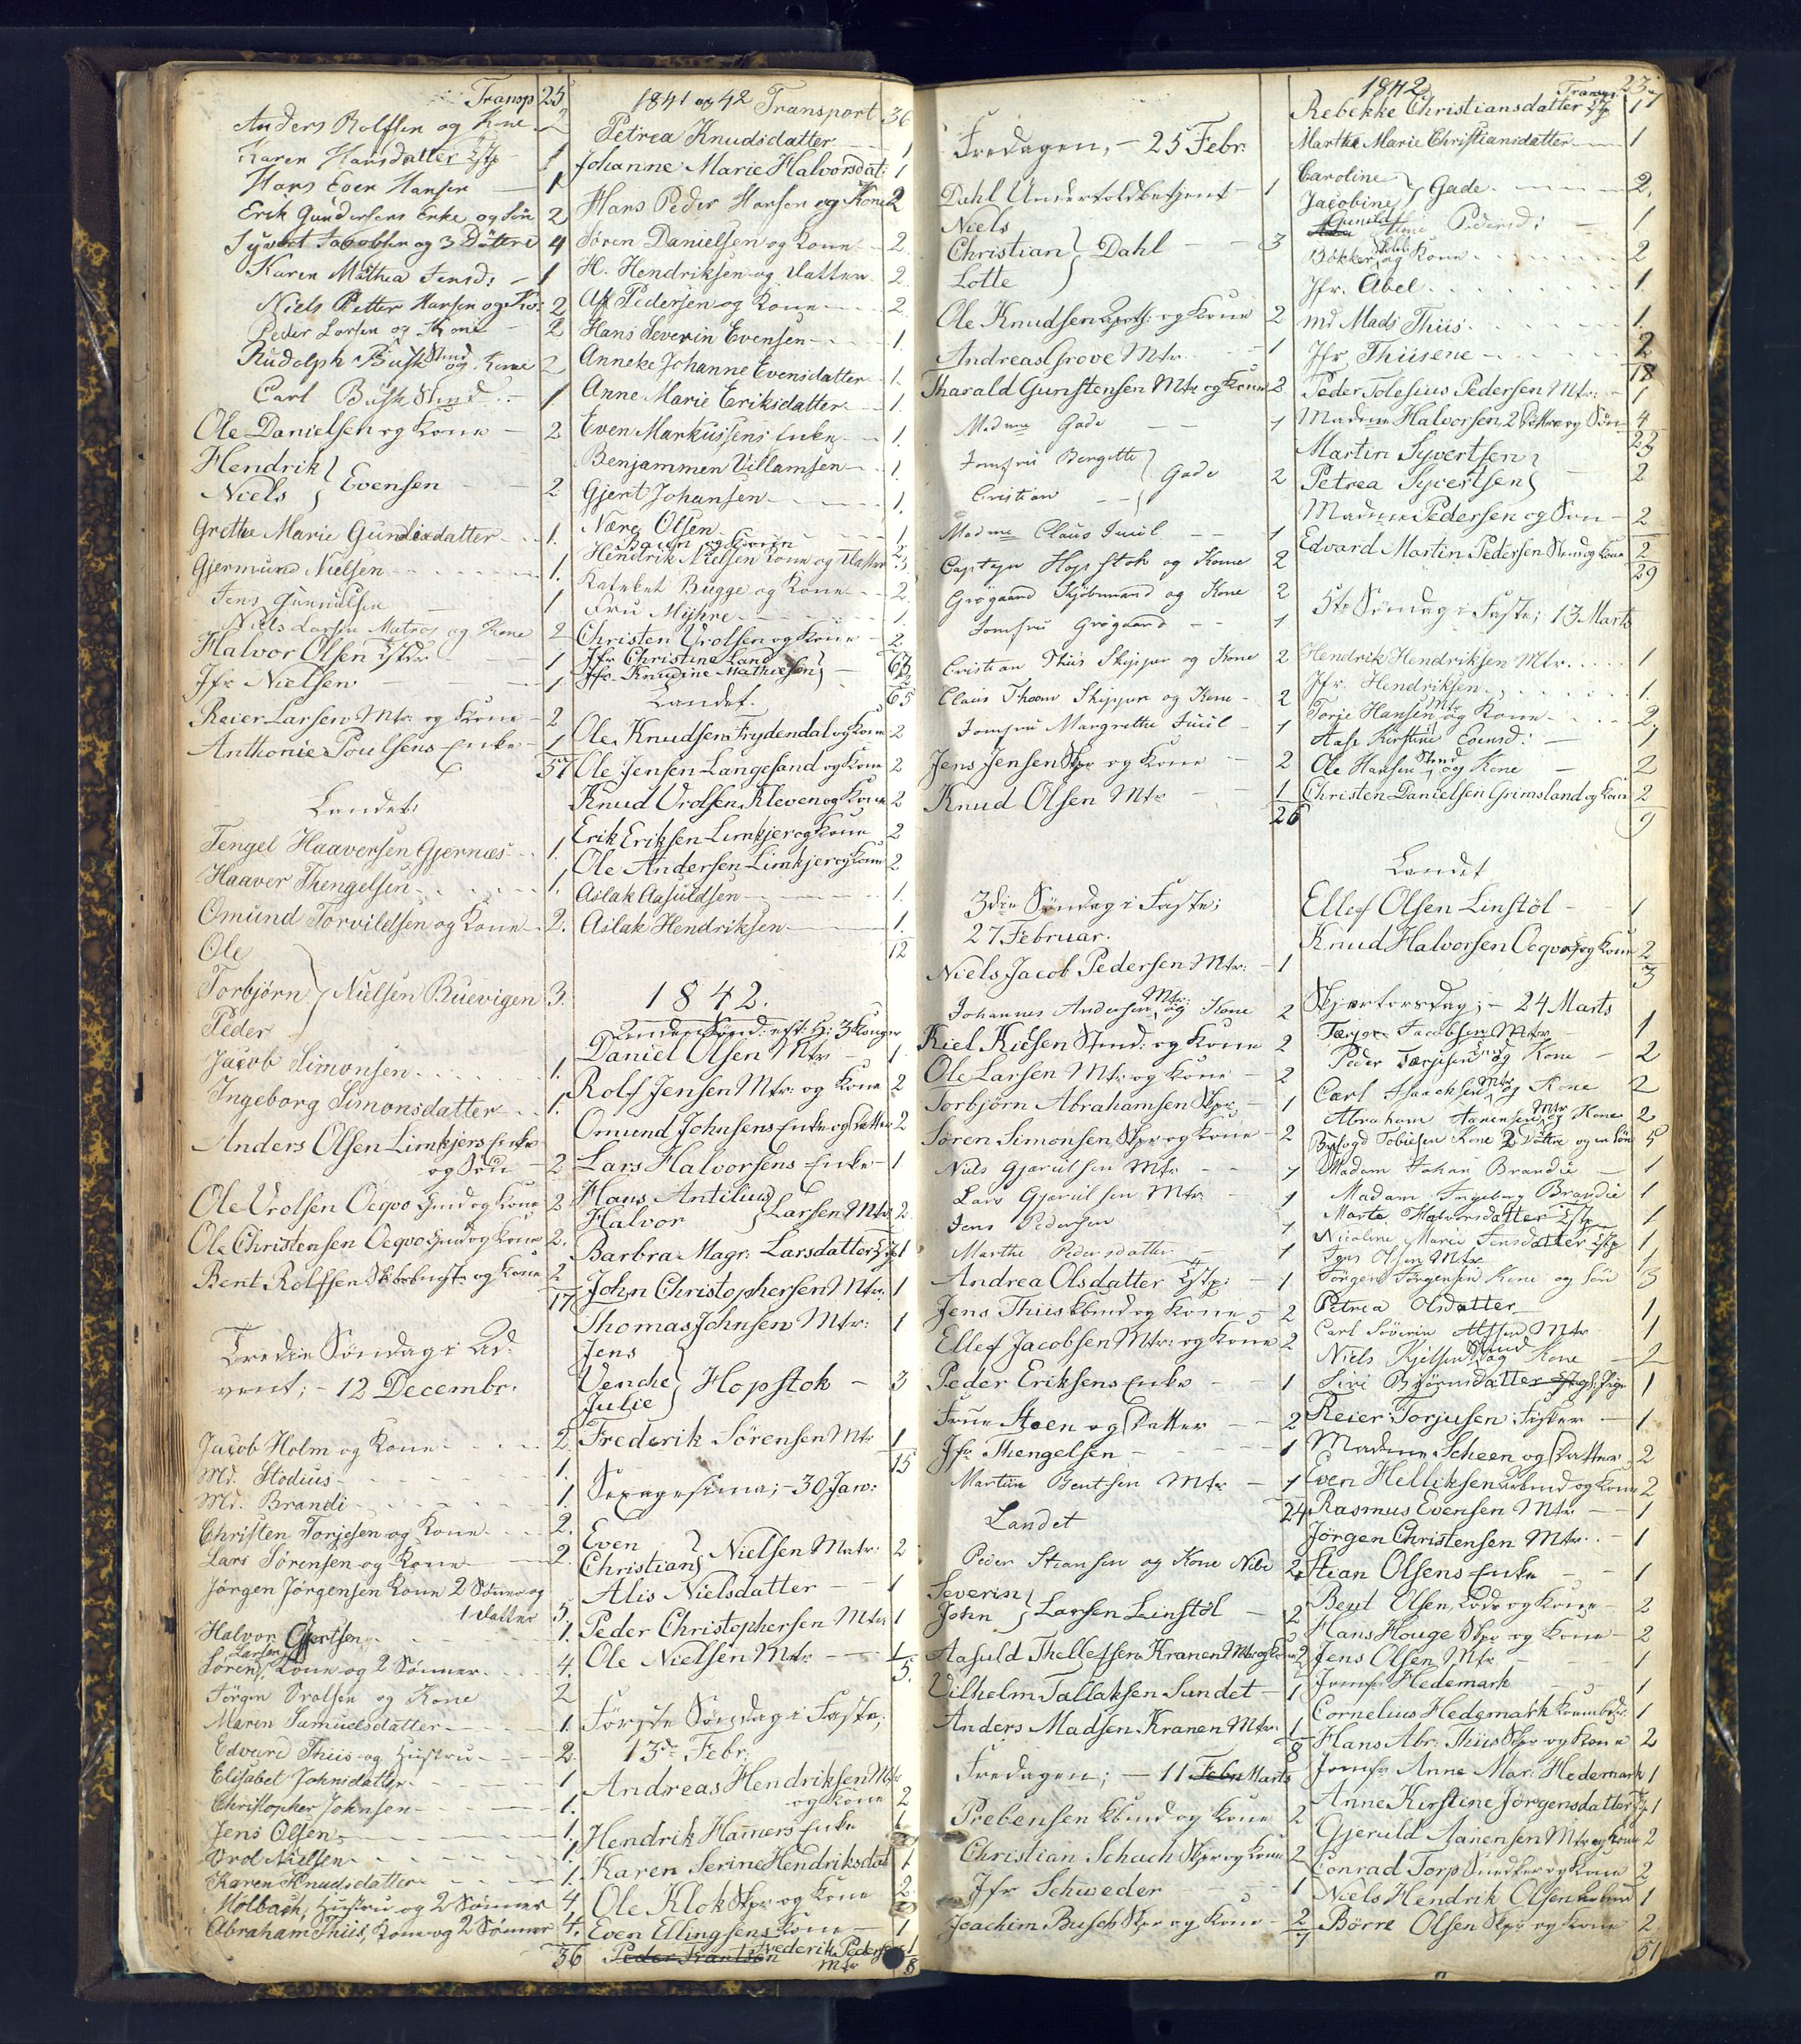 Transp 25
Anders Rolfsen og Kone 2
Karen Hansdatter Tstp 1
Hans Even Hansen 1
Erik Gundersens Enke og Søn 2
Syvert Jacobsen og 3 Døttre 4
Karen Mathea Jensd: 1
Niels Petter Hansen og Ko: 2
Peder Larsen og Kone 2
Rudolph Busk Stmd og Kone 2
Carl Busk Stmd 1
Ole Danielsen og Kone 2
Hendrik
Niels } Evensen 2
Grethe Marie Gundersdatter 1.
Gjermund Nielsen 1.
Jens Gunnulsen 1
Niels Larsen Matros og Kone 2
Halvor Olsen 1
Jfr Nielsen 1.
Reier Larsen Mtr. og Kone 2
Anthonie Poulsens Enke 1
57
Landet:
Tengel Haaversen Gjernæs 1.
Haaver Thengelsen 1.
Omund Torvildsen og Kone 2.
Ole
Torbjørn } Nielsen Buevigen 3.
Peder
Jacob Simonsen 1.
Ingeborg Simonsdatter 1.
Anders Olsen Limkjers Enke
og Søn 2
Ole Vrolsen Ocqvo Gmd og Kone 2
Ole Christensen Ocqvo Gmd og Kone 2.
Bent Rolfsen og Kone 2
17
Tredie Søndag i Ad-
vent; - 12 Decembr.
Jacob Holm og Kone 2
Md. Stodius 1.
Md. Brandi 1.
Christen Torjesen og Kone 2.
Lars Sørensen og Kone 2
Jørgen Jørgensen Kone 2 Sønner og
1 Datter 5.
Halvor Gjertsen 1.
Søren Larsen, Kone og 2 Sønner 4.
Jörgen Vrolsen og Kone 2
Maren Samuelsdatter 1.
Edvard Thiis og Hustru 2.
Elisabet Johnsdatter 1
Christopher Johnsen 1.
Jens Olsen 1.
Vrol Nielsen 1.
Karen Knudsdatter 1.
Molbach, Hustru og 2 Sønner 4.
Abraham Thiis, Kone og 2 Sønner 4.
36
1841 og 42 Transport 36
Petrea Knudsdatter 1
Johanne Marie Halvorsdat: 1
Hans Peder Hansen og Kone 2
Søren Danielsen og Kone 2.
H. Hendriksen og Datter 2.
Alf Pedersen og Kone 2.
Hans Severin Evensen 1.
Anneke Johanne Evensdatter 1.
Anne Marie Eriksdatter 1.
Even Markussens Enke 1.
Benjammen Villamsen 1.
Gjert Johansen 1.
Næro Olsen 1.
Hendrik Nielsen Kone og Datter 3
Kateket Bugge og Kone 2.
Fru Myhre 1.
Christen Vrolsen og Kone 2.
63
Jfr Christine Land
Jfr. Knudine Mathiesen } 2
65
Landet.
Ole Knudsen Frydendal og Kone 2
Ole Jensen Langesand og Kone 2
Knud Vrolsen Kleven og Kone 2
Erik Eriksen Limkjer og Kone 2
Ole Andersen Limkjer og Kone 2
Aslak Aasuldsen 1.
Aslak Hendriksen 1.
12
1842.
Anden Sønd: eft: H: 3 Konger
Daniel Olsen Mtr 1.
Rolf Jensen Mtr: og Kone 2
Omund Johnsens Enke og Datter 2
Lars Halvorsens Enke 1
Hans Antilius
Halvor } Larsen Mtr. 2
Barbra Magr: Larsdatter 1
John Christophersen Mtr: 1
Thomas Johnsen Mtr: 1
Jens
Venche } Hopstok 3
Julie
Frederik Sørensen Mtr 1
15
Sexagesima; - 30 Jan:
Even
Christian } Nielsen Matr: 2
Alis Nielsdatter 1
Peder Christophersen Mtr 1
Ole Nielsen Mtr 1
5.
Første Søndag i Faste;
13de Febr:
Andreas Hendriksen Mtr
og Kone 2
Hendrik Hamers Enke 1
Karen Serine Hendriksdat 1
Ole Klok Skpr og Kone 2
Even Ellingsens Kone 1
Peder Frantson Frederik Pedersen 1
Mtr 8
Fredagen, - 25 Febr:
Dahl Undertoldbetjent 1
Niels
Christian } Dahl 3
Lotte
Ole Knudsen og Kone 2
Andreas Grove Mtr. 1
Tharald Gunstensen Mtr og Kone 2
Madme Gade 1
Jomfru Bergitte
Cristian } Gade 2
Madme Claus Juul 1
Captejn Hopstok og Kone 2
Grögaard Kjöbmand og Kone 2
Jomfru Grögaard 1
Cristian Thiis Skipper og Kone 2
Claus Thom Skipper og Kone 2
Jomfru Margrethe Juul 1
Jens Jensen Skpr og Kone 2
Knud Olsen Mtr 1
26
3die Søndag i Faste;
27 Februar.
Niels Jacob Pedersen Mtr: 1
Johannes Andersen Mtr: og Kone 2
Kiel Kielsen Stmd: og Kone 2
Ole Larsen Mtr og Kone 2
Torbjørn Abrahamsen Skpr 1
Søren Simonsen Skpr og Kone 2
Niels Gjerulsen Mtr 1
Lars Gjerulsen Mtr: 1
Jens Pedersen 1
Marthe Pedersdatter 1
Andrea Olsdatter Tstp: 1
Jens Thiis Kbmd og Kone 2
Ellef Jacobsen Mtr: og Kone 2
Peder Eriksens Enke 1
Frue Stoen og Datter 2
Jfr Thengelsen 1
Martin Bentsen Mtr 1
24
Landet
Peder Stiansen og Kone Nibe 2
Severin
John } Larsen Linstøl 2
Aasuld Thellefsen Kranen Mtr og Kone 2
Vilhelm Tallaksen Sundet 1
Anders Madsen Kranen Mtr: 1
8
Fredagen; - 11 Febr Marts
Prebensen Kbmd og Kone 2
Christian Schach Skpr og Kone 2
Jfr Schweder 1
Joachim Busch Skpr og Kone 2
7
1842
Transp 23
Rebekke Christiansdatter Tstp 1
Marthe Marie Christiansdatter 1
Caroline
Jacobine } Gade 2.
Gunild Aline Pedersd: 1
Bökker og Kone 2
Jfr. Abel 1.
Md Mads Thiis 1.
Jfr Thiisene 2
18
Peder Tolesius Pedersen Mtr: 1
Madme Halvorsen, 2 Døttre og Søn 4
23
Martin Syvertsen
Petrea Syvertsen } 2
Madme Pedersen og Søn 2
Edvard Martin Pedersen Stmd og Kone 2
29
5te Søndag i Faste; 13 Marts
Hendrik Hendriksen Mtr. 1
Jfr. Hendriksen 1.
Torje Hansen Mtr og Kone 2.
Aase Kirstine Evensd: 1
Ole Hansen Stmd og Kone 2
Christen Danielsen Grimsland og Kone 2
9
Landet
Ellef Olsen Linstöl 1
Knud Halvorsen Ocqvog og Kone 2
3
Skjærtorsdag; - 24 Marts
Tærje Jacobsen Mtr 1
Peder Tærjesen og Kone 2
Carl Isaachsen Mtr og Kone 2
Abraham Aanensen Mtr og Kone 2
Byfogd Tobiesen Kone 2 Döttre og en Sön 5
Madam Johan Brandie 1
Madam Ingeborg Brandie 1
Marte Halvorsdatter Tstp 1
Nicoline Marie Jensdatter Tstp 1
Jens Olsen Mtr 1
Jörgen Jörgensen Kone og Sön 3
Petrea Olsdatter 1
Carl Söverin Alfsen Mtr 1
Niels Kjelsen Stmd og Kone 2
Siri Björnsdatter Pige 1
Reier Torjusen Fisker 1
Madme Scheen og Datter 2
Even Helliksen og Kone 2
Rasmus Evensen Mtr 1
Jörgen Christensen Mtr. 1
Stian Olsens Enke 1
Bent Olsen, Lods og Kone 2
Hans Houge Skpr og Kone 2
Jens Olsen Mtr 1
Jomfr Hedemark 1
Cornelius Hedemark 1
Hans Abr. Thiis Skpr og Kone 2
Jomfr Anne Mar: Hedemark 1
Anne Kirstine Jørgensdatter Tstp 1
Gjeruld Aanensen Mtr og Kone 2
Conrad Torp Snedker og Kone 2
Niels Hendrik Olsen 1
Børre Olsen Skpr og Kone 2
51